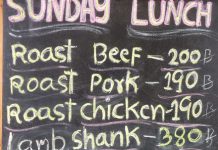 SUNDAY LUNCH
Roast Beef - 200 B
Roast Pork - 190 B
Roast chicken - 190 B
Lamb shank - 380 B